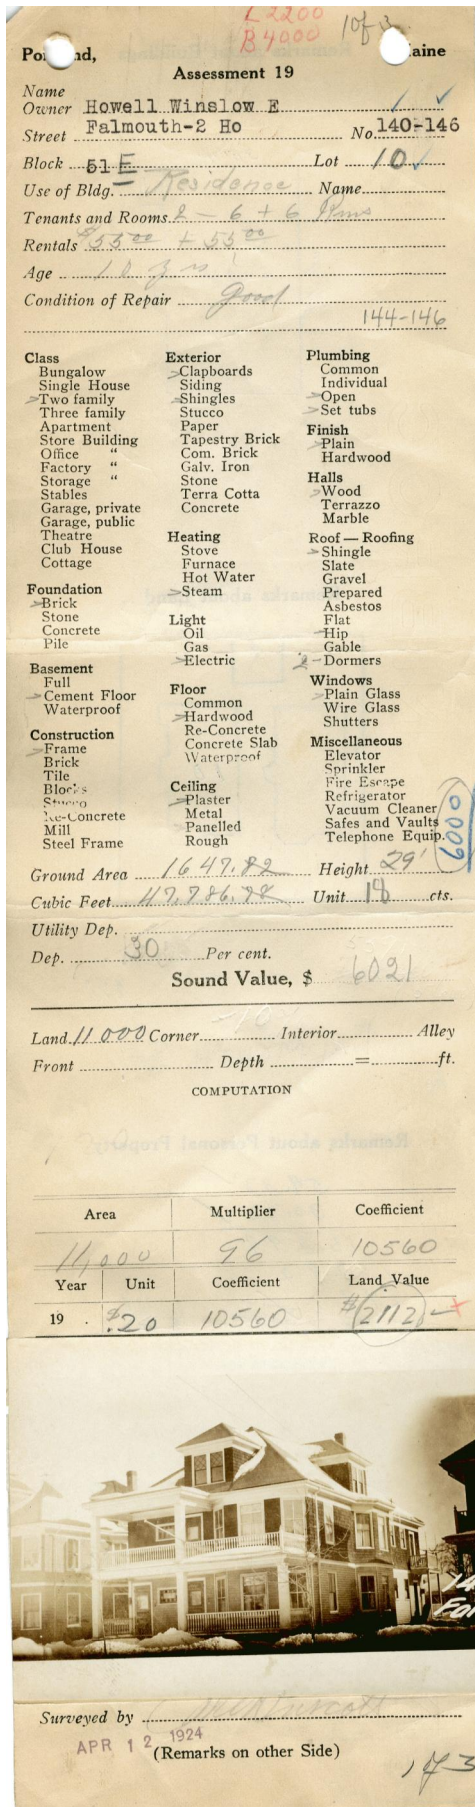 L 2200
B 4000
1 of 3
Po nd, aine
Assessment 19
Name
Owner Howell Winslow E
Street Falmouth-2 Ho No. 140-146
Block 51 E Lot 10
Use of Bldg. Residence Name
Tenants and Rooms 2 - 6 + 6 Rms
Rentals $55 00 + 55 00
Age 10 yrs
Condition of Repair Good
144-146
Class
Bungalow
Single House
Two family
Three family
Apartment
Store Building
Office "
Factory "
Storage "
Stables
Garage, private
Garage, public
Theatre
Club House
Cottage
Foundation
Brick
Stone
Concrete
Pile
Basement
Full
Cement Floor
Waterproof
Construction
Frame
Brick
Tile
Blocks
Stucco
Re-Concrete
Mill
Steel Frame
Exterior
Clapboards
Siding
Shingles
Stucco
Paper
Tapestry Brick
Com. Brick
Galv. Iron
Stone
Terra Cotta
Concrete
Heating
Stove
Furnace
Hot Water
Steam
Light
Oil
Gas
Electric
Floor
Common
Hardwood
Re-Concrete
Concrete Slab
Waterproof
Ceiling
Plaster
Metal
Panelled
Rough
Plumbing
Common
Individual
Open
Set tubs
Finish
Plain
Hardwood
Halls
Wood
Terrazzo
Marble
Roof — Roofing
Shingle
Slate
Gravel
Prepared
Asbestos
Flat
Hip
Gable
2 - Dormers
Windows
Plain Glass
Wire Glass
Shutters
Miscellaneous
Elevator
Sprinkler
Fire Escape
Refrigerator
Vacuum Cleaner
Safes and Vaults
Telephone Equip.
6000
Ground Area 1647.82 Height 29'
Cubic Feet 47.786.78 Unit 18 cts.
Utility Dep.
Dep. 30 Per cent.
Sound Value, $ 6021
Land 11000 Corner Interior Alley
Front Depth = ft.
COMPUTATION
Area Multiplier Coefficient
11,000 96 10560
Year Unit Coefficient Land Value
19 . $.20 10560 $2112
Surveyed by
APR 12 1924
(Remarks on other Side)
1 of 3